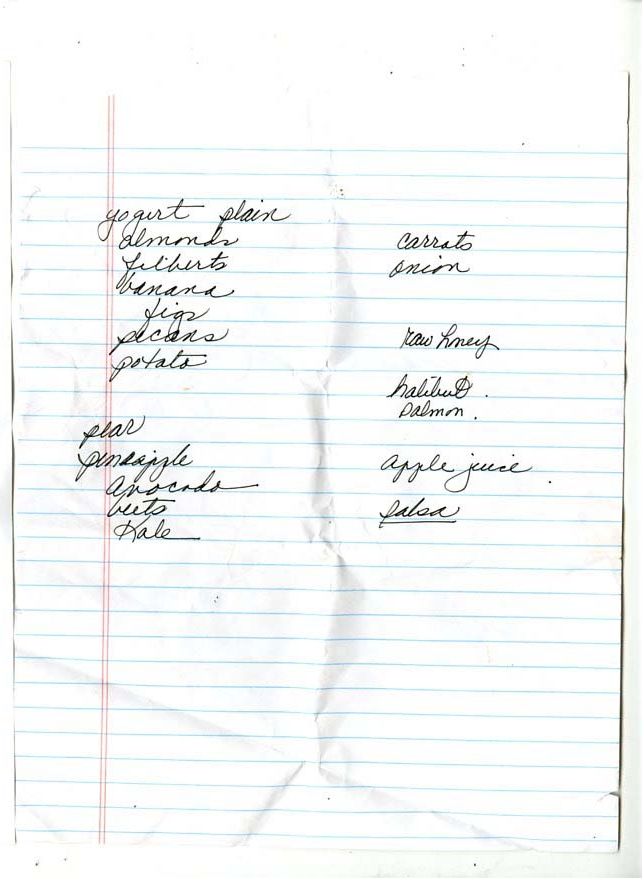 yogurt plain
almonds
filberts
banana
figs
pecans
potato
pear
pineapple
avocado
beets
Kale
carrots
onion
raw honey
halibut.
salmon.
apple juice
salsa